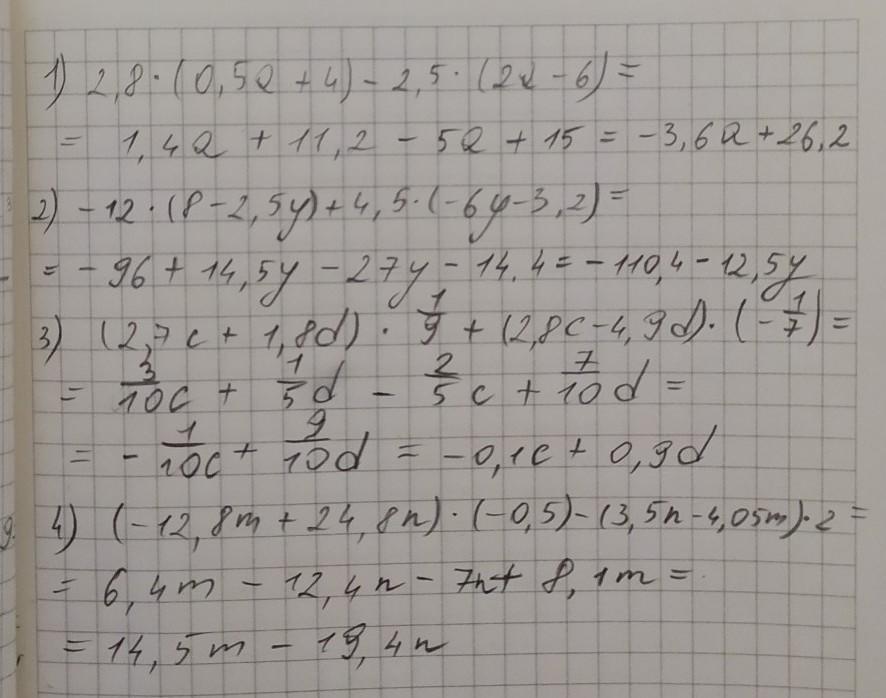 1) 2,8·(0,5a+4)-2,5·(2a-6)=
= 1,4a + 11,2 - 5a + 15 = -3,6a+26,2
2) -12·(8-2,5y)+4,5·(-6y-3,2)=
= -96 + 14,5y - 27y - 14,4 = -110,4 - 12,5y
3) (2,7c + 1,8d) · 1/9 + (2,8c-4,9d)·(-1/7)=
= 3/10c + 1/5d - 2/5c + 7/10d =
= -1/10c + 9/10d = -0,1c + 0,9d
4) (-12,8m + 24,8n)·(-0,5)-(3,5n-4,05m)·2=
= 6,4m - 12,4n - 7n + 8,1m =
= 14,5m - 19,4n